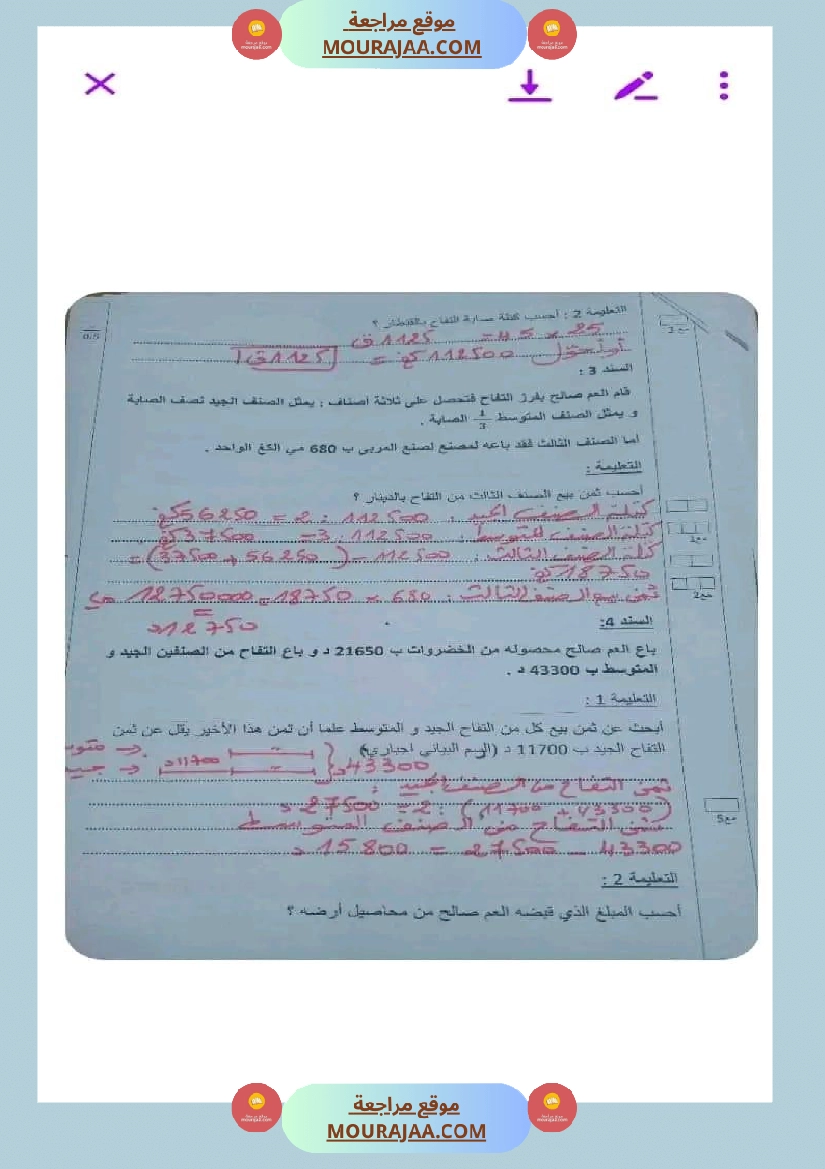 موقع مراجعة
MOURAJAA.COM
التعليمة 2 : أحسب كتلة صابة التفاح بالقنطار ؟
25 × 45 = 1125 ق
112500 كغ = 1125 ق
السند 3 :
قام العم صالح بفرز التفاح فتحصل على ثلاثة أصناف : يمثل الصنف الجيد نصف الصابة
و يمثل الصنف المتوسط 1/3 الصابة .
أما الصنف الثالث فقد باعه لمصنع لصنع المربى ب 680 مي الكغ الواحد .
التعليمة :
أحسب ثمن بيع الصنف الثالث من التفاح بالدينار ؟
كتلة الصنف الجيد : 112500 : 2 = 56250 كغ
كتلة الصنف المتوسط : 112500 : 3 = 37500 كغ
كتلة الصنف الثالث : 112500 – (56250 + 37500) =
18750 كغ
ثمن بيع الصنف الثالث : 680 × 18750 = 12750000 مي
=
12750 د
السند 4:
باع العم صالح محصوله من الخضروات ب 21650 د و باع التفاح من الصنفين الجيد و
المتوسط ب 43300 د .
التعليمة 1 :
أبحث عن ثمن بيع كل من التفاح الجيد و المتوسط علما أن ثمن هذا الأخير يقل عن ثمن
التفاح الجيد ب 11700 د (الرسم البياني اجباري)
43300 د
11700 د
ثمن التفاح من الصنف الجيد :
(43300 + 11700) : 2 = 27500 د
ثمن التفاح من الصنف المتوسط
43300 – 27500 = 15800 د
التعليمة 2 :
أحسب المبلغ الذي قبضه العم صالح من محاصيل أرضه ؟
موقع مراجعة
MOURAJAA.COM